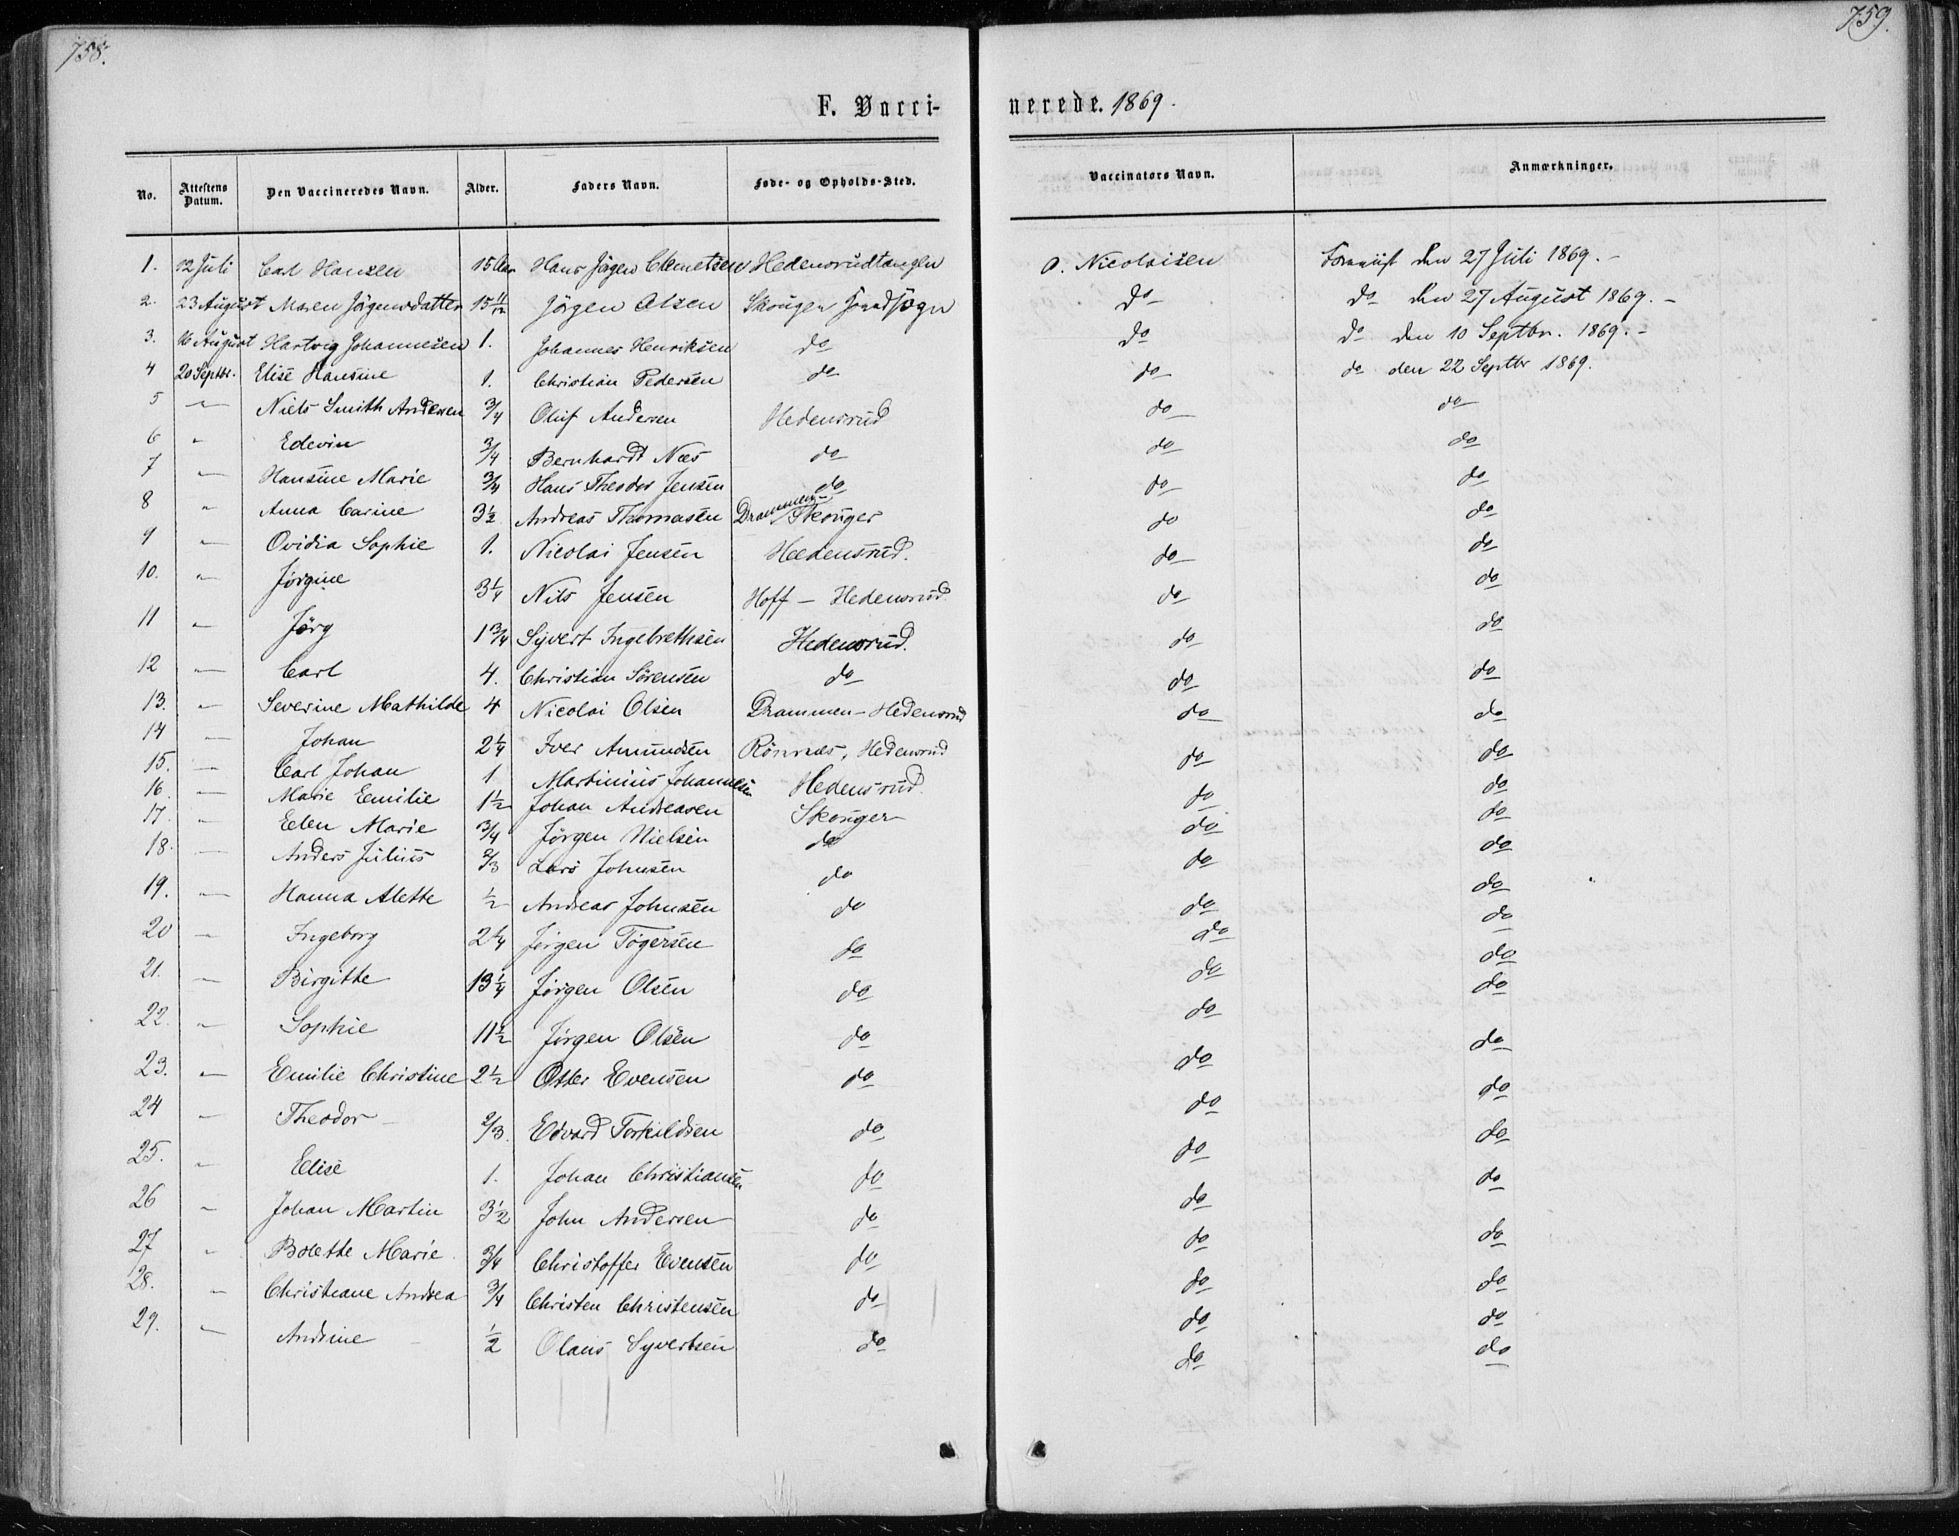 758.
759.
F. Vacci-
nerede. 1869.
No. Attestens Datum. Den Vaccineredes Navn. Alder. Faders Navn. Føde- og Opholds-Sted. Vaccinators Navn. Anmærkninger.
1. 12 Juli Carl Hansen 15 Aar Hans Jögen Clemetsen Hedensrudtangen O. Nicolaisen den 27 Juli 1869. -
2. 23 August Maren Jörgensdatter 15 11/12 Jörgen Olsen Skouger do do den 27 August 1869. -
3. 16 August Hartvig Johannesen 1. Johannes Henriksen do do do den 10 Septbr. 1869. -
4 20 Septbr. Elise Hansine 1. Christian Pedersen do do do den 22 Septbr 1869.
5 " Niels Smith Andersen 3/4 Oluf Andersen Hedensrud do do
6 " Edevin 3/4 Bernhardt Næs do do do
7 " Hansine Marie 3/4 Hans Theodor Jensen do do do
8 " Anna Carine 3 1/2 Andreas Thomasen Drammen - Skouger do do
9 " Ovidia Sophie 1. Nicolai Jensen Hedensrud. do do
10. " Jörgine 3 1/4 Nils Jensen Hoff - Hedensrud do do
11 " Jörg 1 3/4 Syvert Ingebrethsen Hedensrud. do do
12 " Carl 4. Christian Sörensen do do do
13. " Severine Mathilde 4 Nicolai Olsen Drammen - Hedensrud do do
14 " Johan 2 1/4 Iver Amundsen Rönnes, Hedensrud do do
15. " Carl Johan 1 Martinius Johannesen Hedensrud. do do
16. " Marie Emilie 1 1/2 Johan Andreasen Skouger do do
17. " Elen Marie 3/4 Jörgen Nielsen do do do
18. " Anders Julius 2/3 Lars Johnsen do do do
19. " Hanna Alette 1/2 Andreas Johnsen do do do
20 " Ingeborg 2 1/4 Jörgen Togersen do do do
21. " Birgitte 13 1/4 Jörgen Olsen do do do
22. " Sophie 11 1/2 Jörgen Olsen do do do
23. " Emilie Christine 2 1/2 Otter Evensen do do do
24 " Theodor 2/3. Edvard Torkildsen do do do
25. " Elise 1. Johan Christiansen do do do
26 " Johan Martin 3 1/2 John Andersen do do do
27 " Bolette Marie 3/4 Christoffer Evensen do do do
28. " Christiane Andrea 3/4 Christen Christensen do do do
29. " Andrine 1/2 Olaus Syvertsen do do do